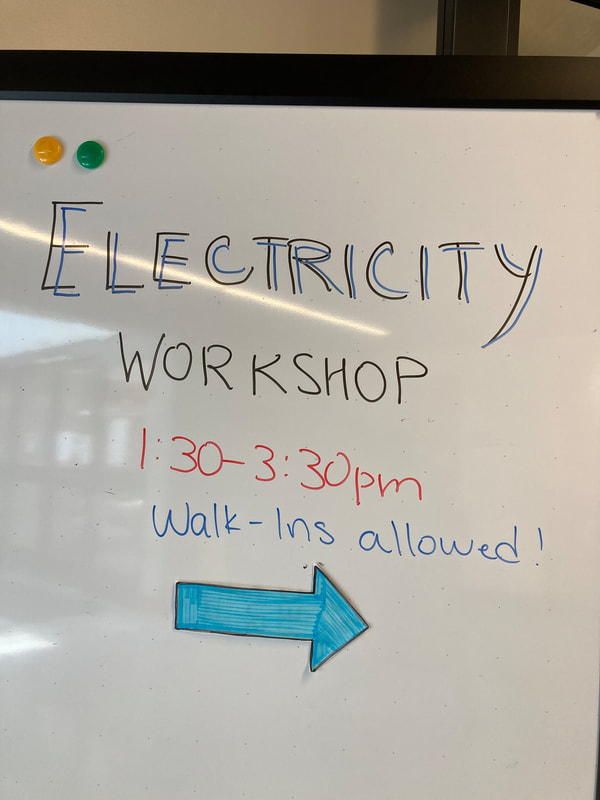 ELECTRICITY
WORKSHOP
1:30-3:30pm
Walk-Ins allowed!